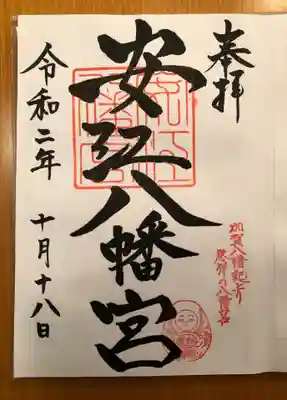 奉拝
加賀八幡起上り
発祥の八幡宮
安江八幡宮
令和二年 十月十八日